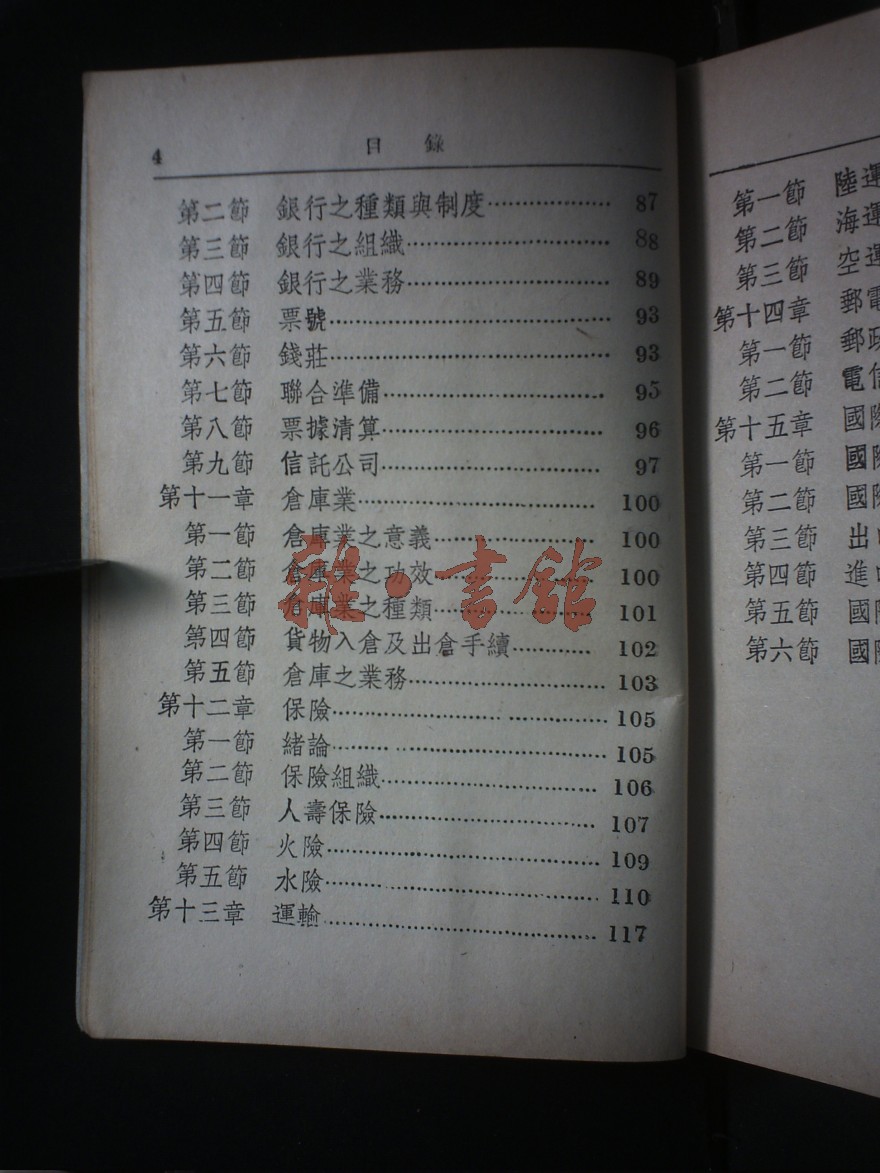 4 目錄
第二節 銀行之種類與制度⋯⋯⋯⋯⋯⋯ 87
第三節 銀行之組織⋯⋯⋯⋯⋯⋯ 88
第四節 銀行之業務⋯⋯⋯⋯⋯⋯ 89
第五節 票號⋯⋯⋯⋯⋯⋯ 93
第六節 錢莊⋯⋯⋯⋯⋯⋯ 93
第七節 聯合準備⋯⋯⋯⋯⋯⋯ 95
第八節 票據清算⋯⋯⋯⋯⋯⋯ 96
第九節 信託公司⋯⋯⋯⋯⋯⋯ 97
第十一章 倉庫業⋯⋯⋯⋯⋯⋯ 100
第一節 倉庫業之意義⋯⋯⋯⋯⋯⋯ 100
第二節 倉庫業之功效⋯⋯⋯⋯⋯⋯ 100
第三節 倉庫業之種類⋯⋯⋯⋯⋯⋯ 101
第四節 貨物入倉及出倉手續⋯⋯⋯⋯ 102
第五節 倉庫之業務⋯⋯⋯⋯⋯⋯ 103
第十二章 保險⋯⋯⋯⋯⋯⋯ 105
第一節 緒論⋯⋯⋯⋯⋯⋯ 105
第二節 保險組織⋯⋯⋯⋯⋯⋯ 106
第三節 人壽保險⋯⋯⋯⋯⋯⋯ 107
第四節 火險⋯⋯⋯⋯⋯⋯ 109
第五節 水險⋯⋯⋯⋯⋯⋯ 110
第十三章 運輸⋯⋯⋯⋯⋯⋯ 117
雅·書館
第一節 陸運
第二節 海運
第三節 空運
第十四章 郵電
第一節 郵政
第二節 電信
第十五章 國際
第一節 國際
第二節 國際
第三節 出口
第四節 進口
第五節 國際
第六節 國際